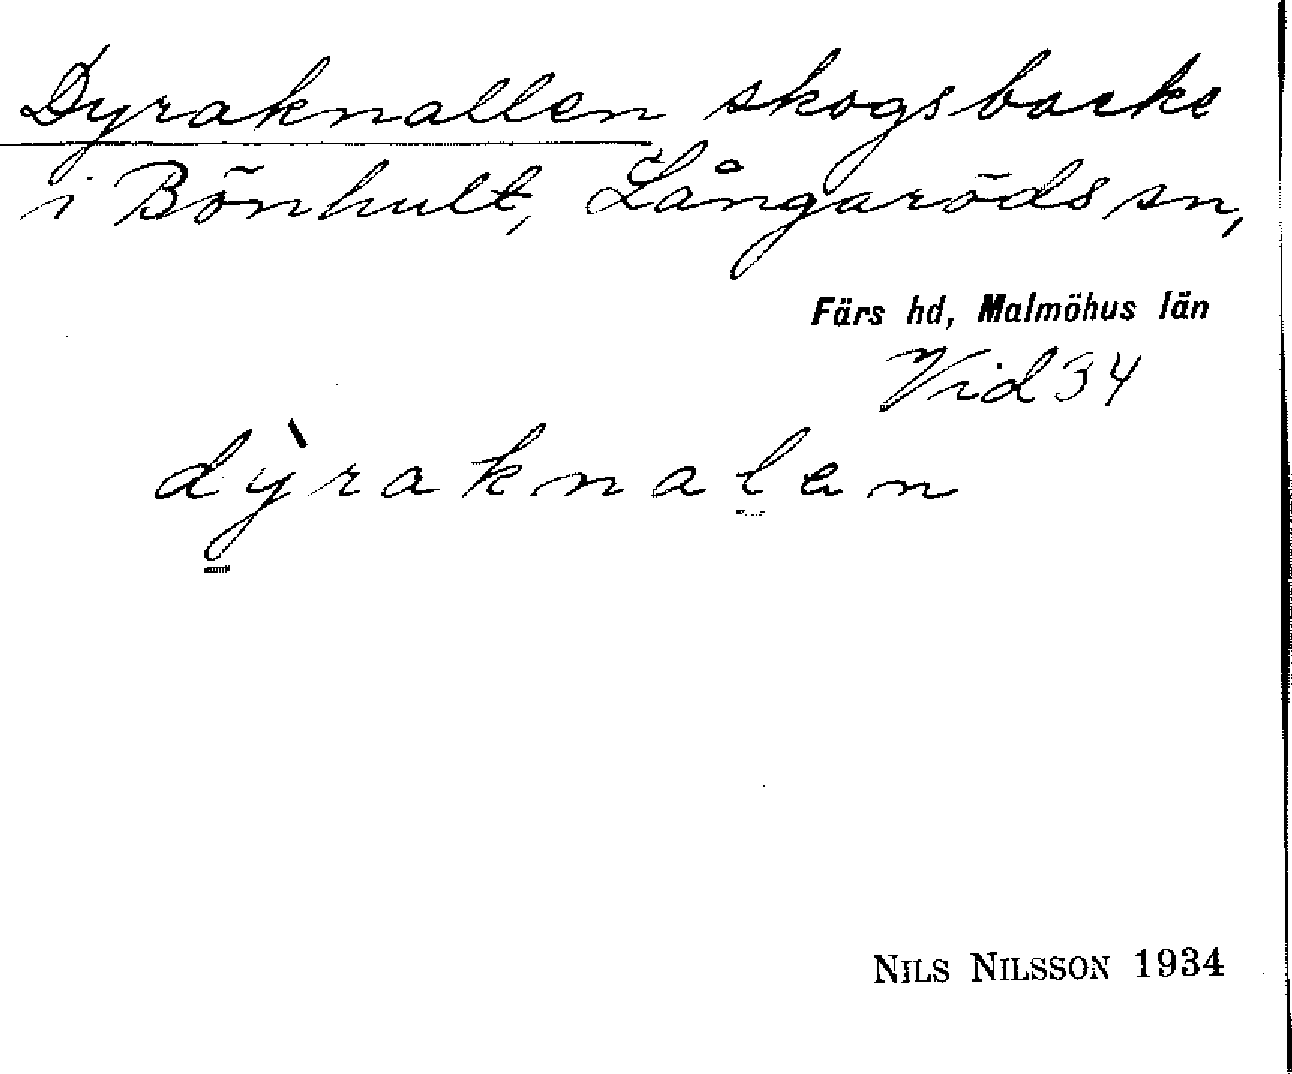 Dyraknallen skogsbacke
i Bönhult, Långaröds sn,
Färs hd, Malmöhus län
Vid 34
dỳraknalen
NILS NILSSON 1934